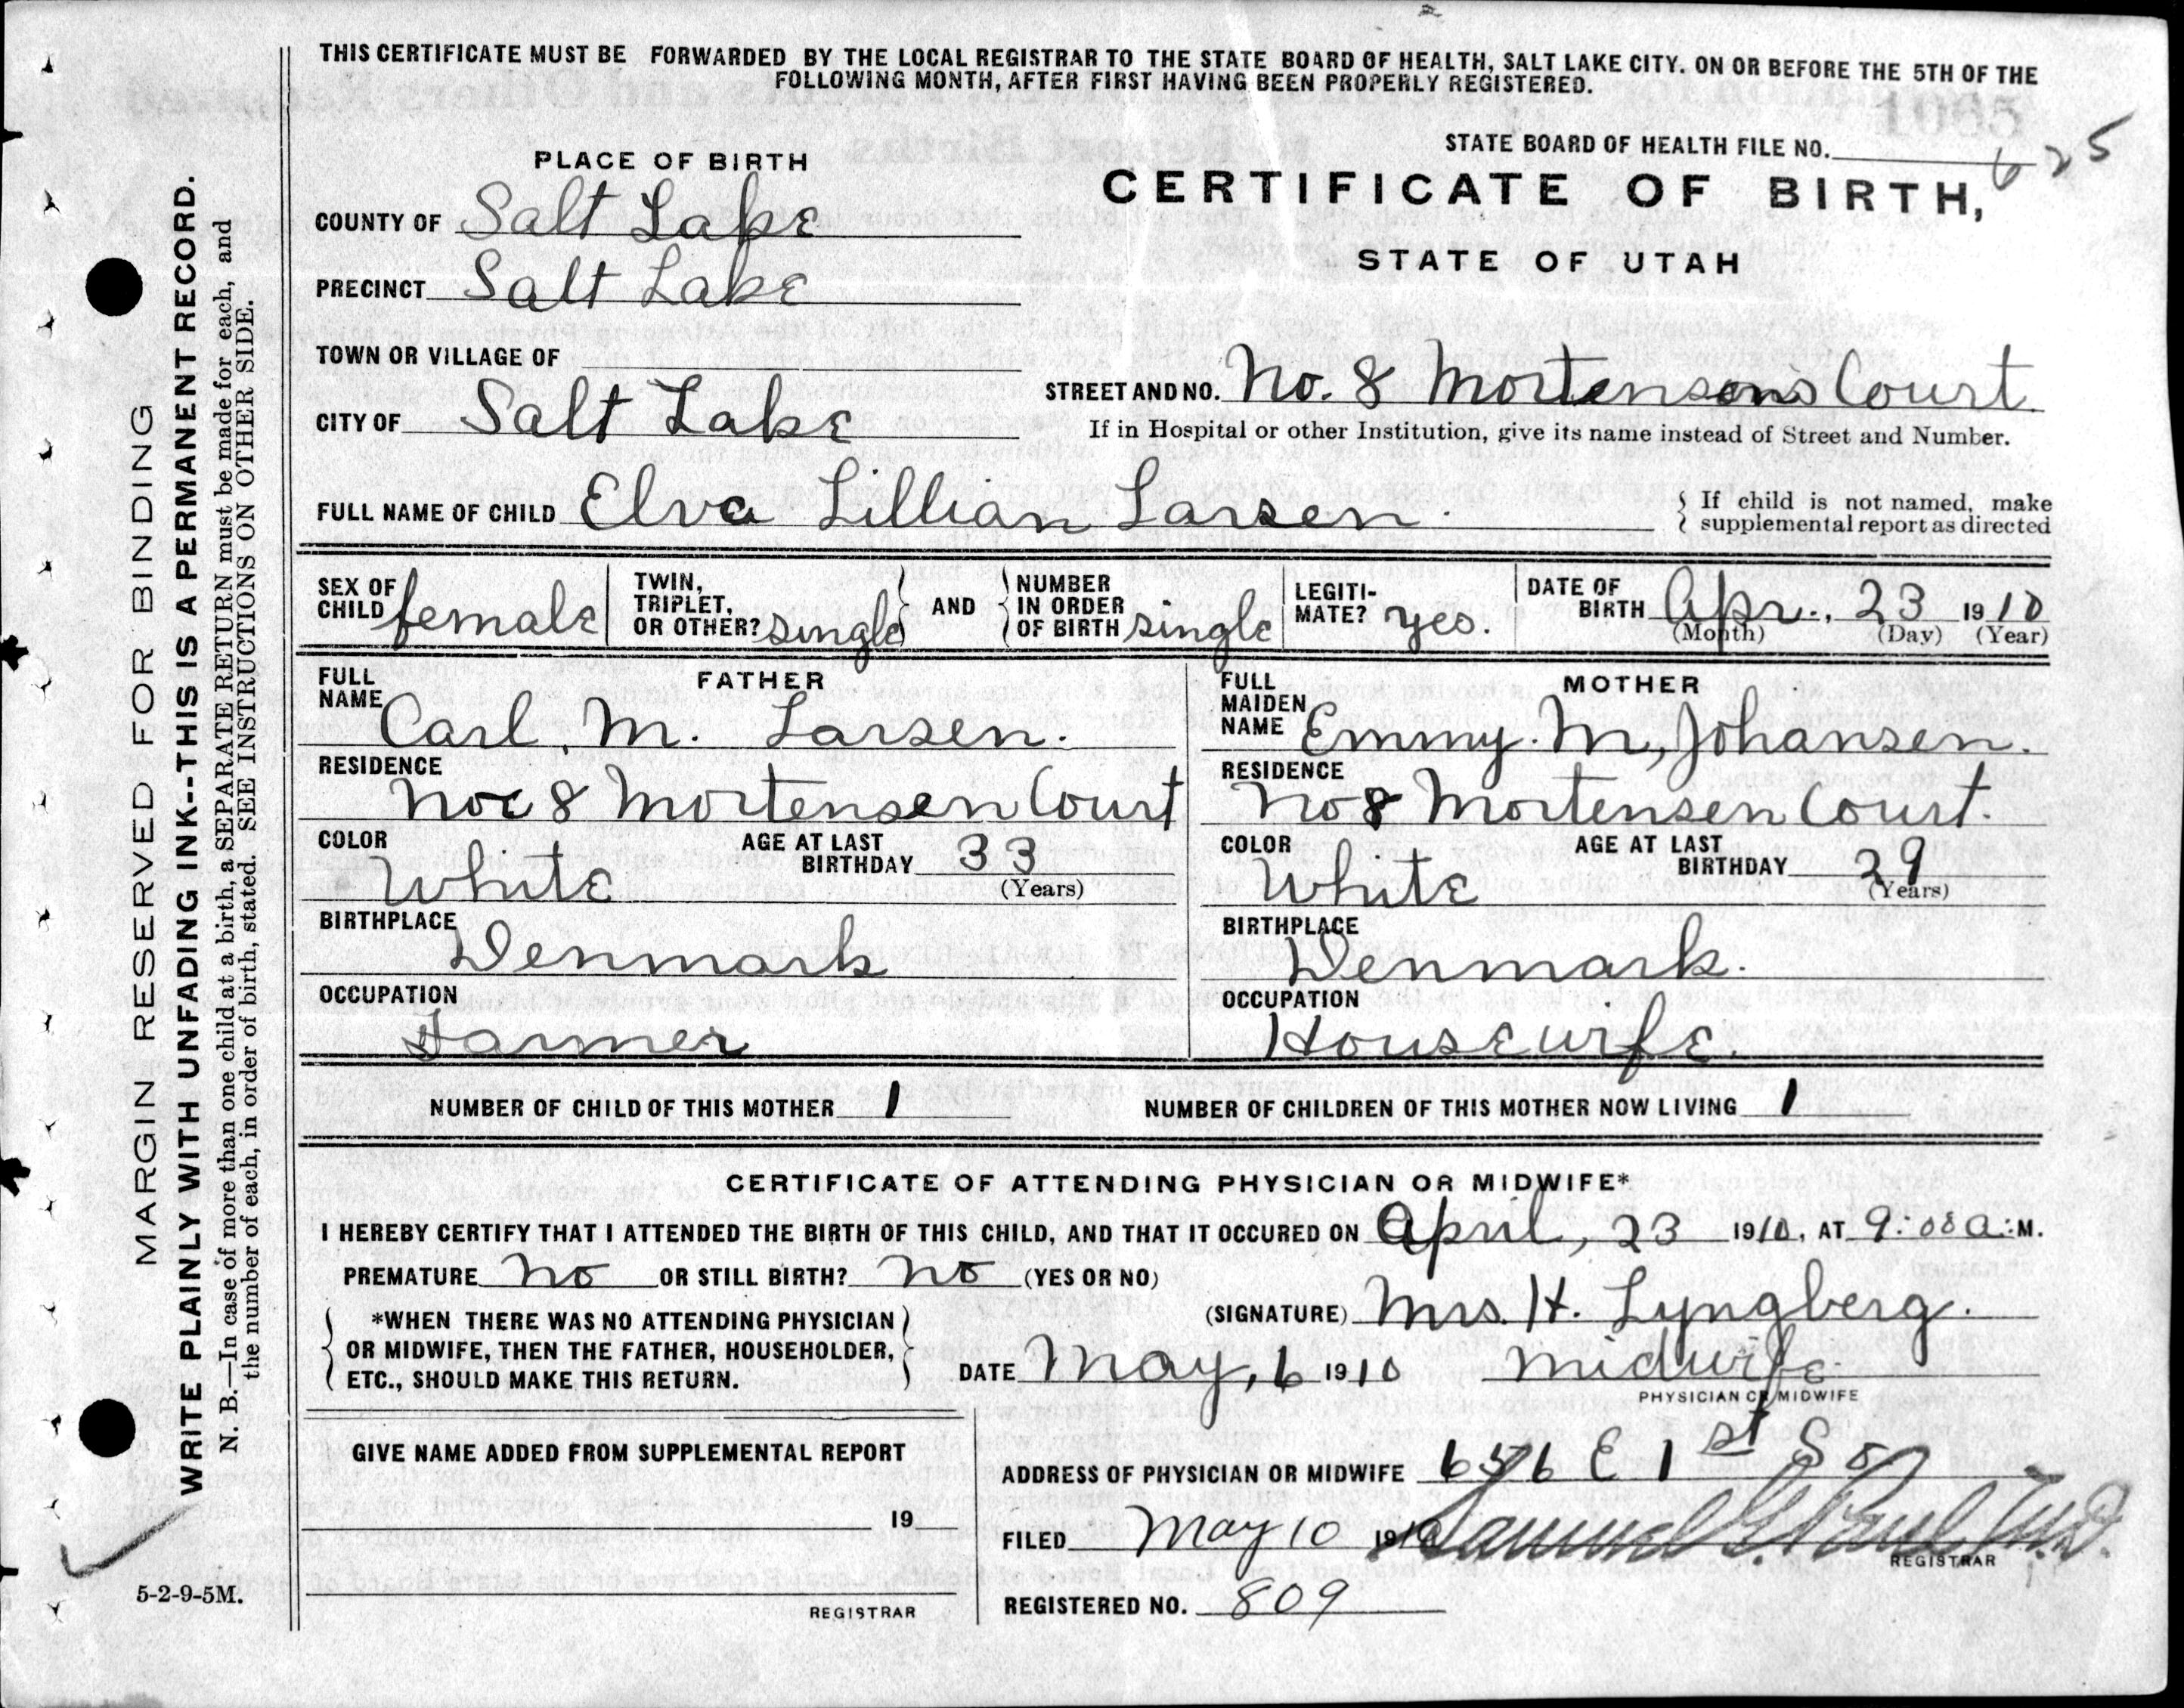 THIS CERTIFICATE MUST BE FORWARDED BY THE LOCAL REGISTRAR TO THE STATE BOARD OF HEALTH, SALT LAKE CITY. ON OR BEFORE THE 5TH OF THE
FOLLOWING MONTH, AFTER FIRST HAVING BEEN PROPERLY REGISTERED.
STATE BOARD OF HEALTH FILE NO. 625
PLACE OF BIRTH
CERTIFICATE OF BIRTH,
STATE OF UTAH
COUNTY OF Salt Lake
PRECINCT Salt Lake
TOWN OR VILLAGE OF
STREET AND NO. No. 8 Mortensons Court
CITY OF Salt Lake
If in Hospital or other Institution, give its name instead of Street and Number.
FULL NAME OF CHILD Elva Lillian Larsen.
If child is not named, make
supplemental report as directed
SEX OF CHILD female
TWIN, TRIPLET, OR OTHER? single AND NUMBER IN ORDER OF BIRTH single
LEGITIMATE? yes.
DATE OF BIRTH Apr., 23 1910
(Month) (Day) (Year)
FATHER
FULL NAME Carl. M. Larsen.
RESIDENCE
No 8 Mortensen Court
COLOR White AGE AT LAST BIRTHDAY 33
(Years)
BIRTHPLACE
Denmark
OCCUPATION
Farmer
MOTHER
FULL MAIDEN NAME Emmy. M, Johansen.
RESIDENCE
No 8 Mortensen Court.
COLOR White AGE AT LAST BIRTHDAY 29
(Years)
BIRTHPLACE
Denmark.
OCCUPATION
Housewife.
NUMBER OF CHILD OF THIS MOTHER 1 NUMBER OF CHILDREN OF THIS MOTHER NOW LIVING 1
CERTIFICATE OF ATTENDING PHYSICIAN OR MIDWIFE*
I HEREBY CERTIFY THAT I ATTENDED THE BIRTH OF THIS CHILD, AND THAT IT OCCURED ON April, 23 1910, AT 9:00 a. M.
PREMATURE No OR STILL BIRTH? No (YES OR NO)
*WHEN THERE WAS NO ATTENDING PHYSICIAN
OR MIDWIFE, THEN THE FATHER, HOUSEHOLDER,
ETC., SHOULD MAKE THIS RETURN.
(SIGNATURE) Mrs. H. Lyngberg.
DATE May, 6 1910 Midwife
PHYSICIAN OR MIDWIFE
GIVE NAME ADDED FROM SUPPLEMENTAL REPORT
19
REGISTRAR
ADDRESS OF PHYSICIAN OR MIDWIFE 656 E 1st So
FILED May 10 1910 Samuel G. Paul M.D.
REGISTRAR
REGISTERED NO. 809
MARGIN RESERVED FOR BINDING
WRITE PLAINLY WITH UNFADING INK--THIS IS A PERMANENT RECORD.
N. B.—In case of more than one child at a birth, a SEPARATE RETURN must be made for each, and
the number of each, in order of birth, stated. SEE INSTRUCTIONS ON OTHER SIDE.
5-2-9-5M.